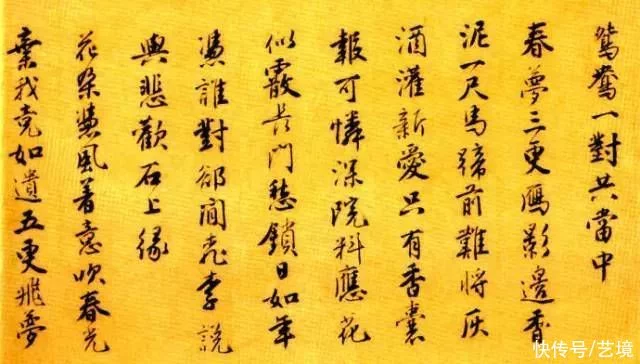 鴛鴦一對共當中
春夢三更雁影邊香
泥一尺馬蹄前難將灰
酒灌新愛只有香囊
報可憐深院料應花
似霰長門愁鎖日如年
憑誰對卻閒桃李說
與悲歡石上緣
花朶憑風着意吹春光
棄我竟如遺五更飛夢
快传号/艺境